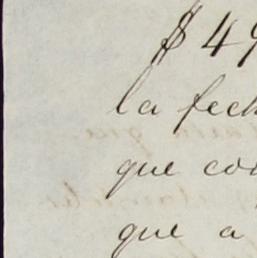 $ 49
la fech
que con
que a